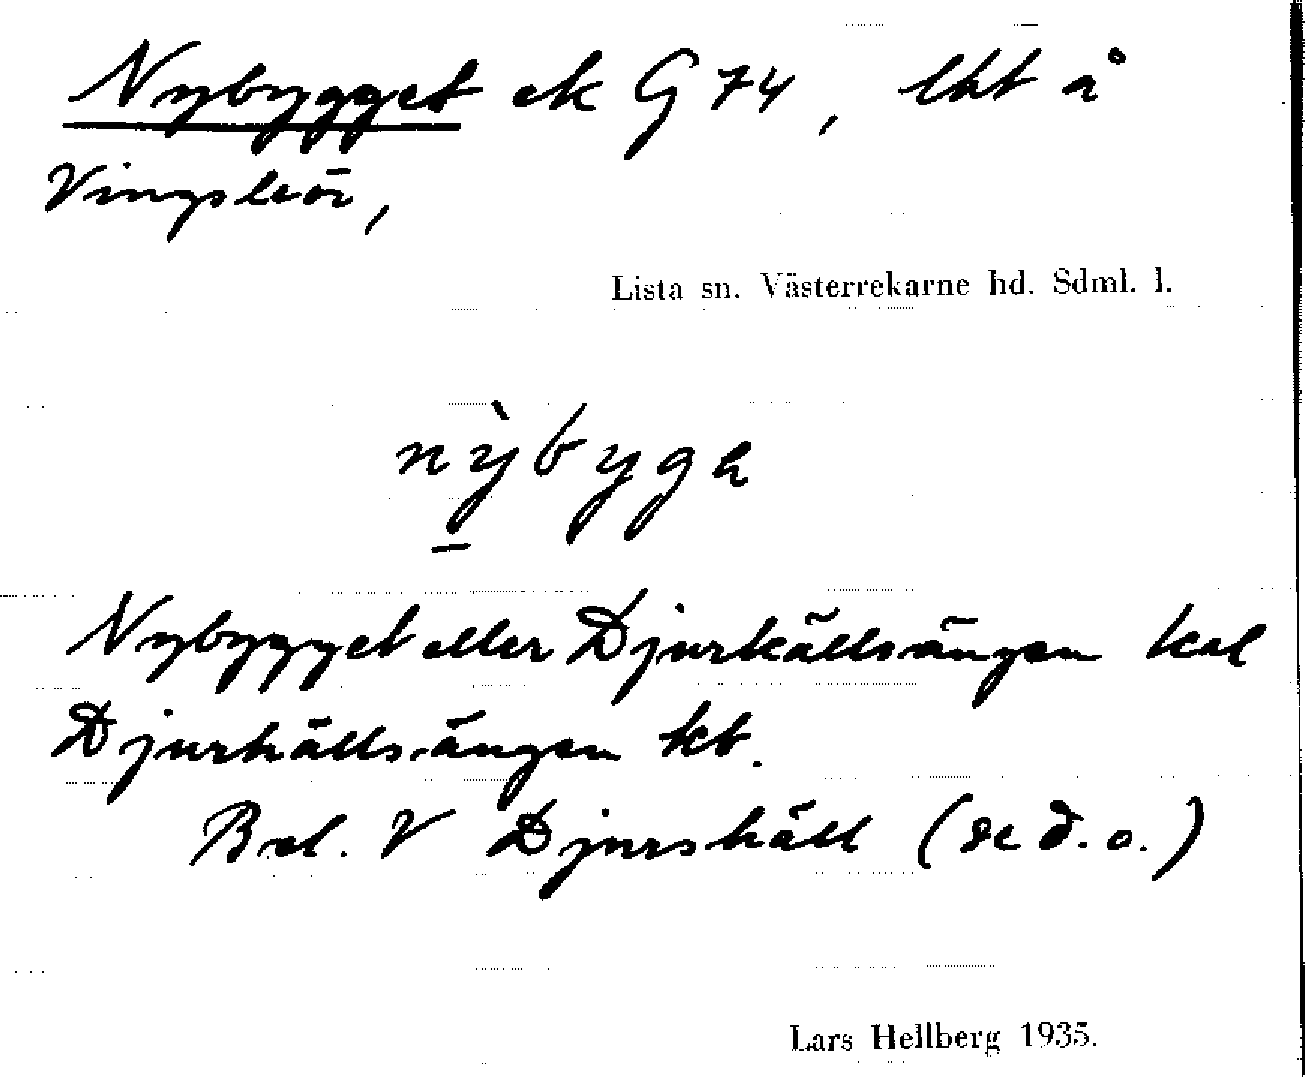 Nybygget ek G 74, lht å
Vingsleör,
Lista sn. Västerrekarne hd. Sdml. l.
nỳbygə
Nybygget eller Djurkällsängen kal
Djurkällsängen kb.
Bel. V Djurskäll (se d. o.)
Lars Hellberg 1935.